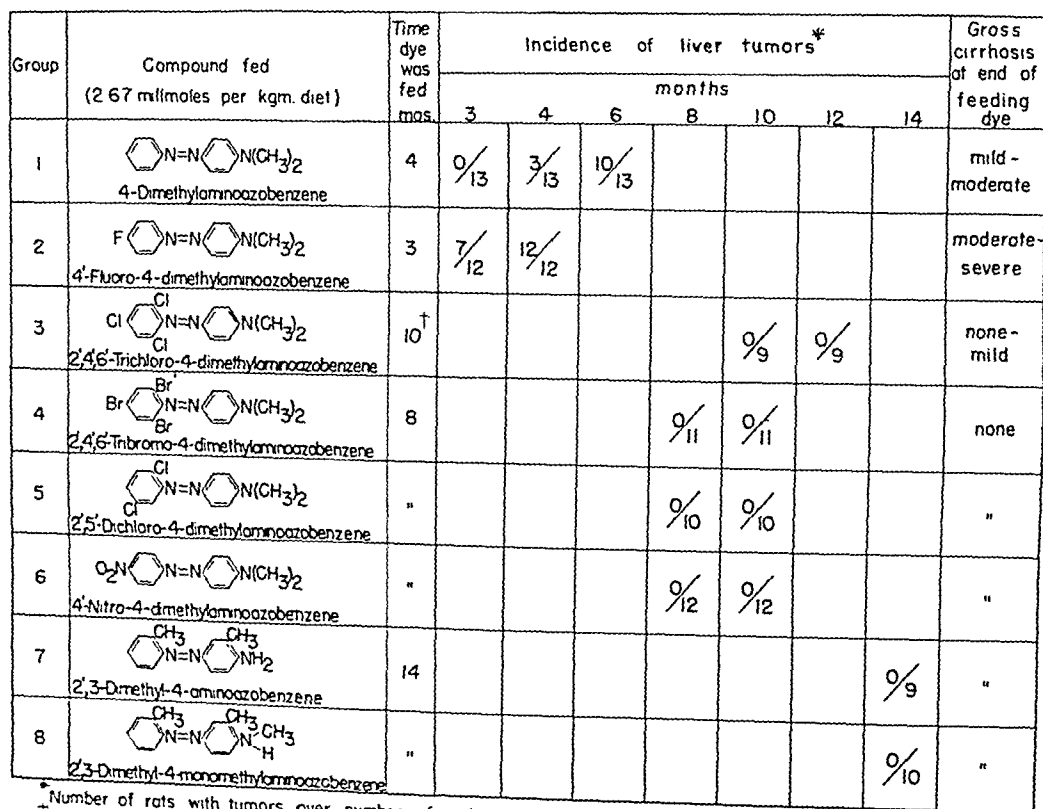 Group
Compound fed
(2 67 millimoles per kgm. diet)
Time
dye
was
fed
mos.
Incidence of liver tumors*
months
3 4 6 8 10 12 14
Gross
cirrhosis
at end of
feeding
dye
1
N=N N(CH3)2
4-Dimethylaminoazobenzene
4
0/13 3/13 10/13
mild-
moderate
2
F N=N N(CH3)2
4'-Fluoro-4-dimethylaminoazobenzene
3
7/12 12/12
moderate-
severe
3
Cl
Cl N=N N(CH3)2
Cl
2',4',6'-Trichloro-4-dimethylaminoazobenzene
10†
0/9 0/9
none-
mild
4
Br
Br N=N N(CH3)2
Br
2',4',6'-Tribromo-4-dimethylaminoazobenzene
8
0/11 0/11
none
5
Cl
N=N N(CH3)2
Cl
2',5'-Dichloro-4-dimethylaminoazobenzene
"
0/10 0/10
"
6
O2N N=N N(CH3)2
4'-Nitro-4-dimethylaminoazobenzene
"
0/12 0/12
"
7
CH3 CH3
N=N NH2
2',3-Dimethyl-4-aminoazobenzene
14
0/9
"
8
CH3 CH3
N=N N CH3
H
2',3-Dimethyl-4-monomethylaminoazobenzene
"
0/10
"
*Number of rats with tumors over number